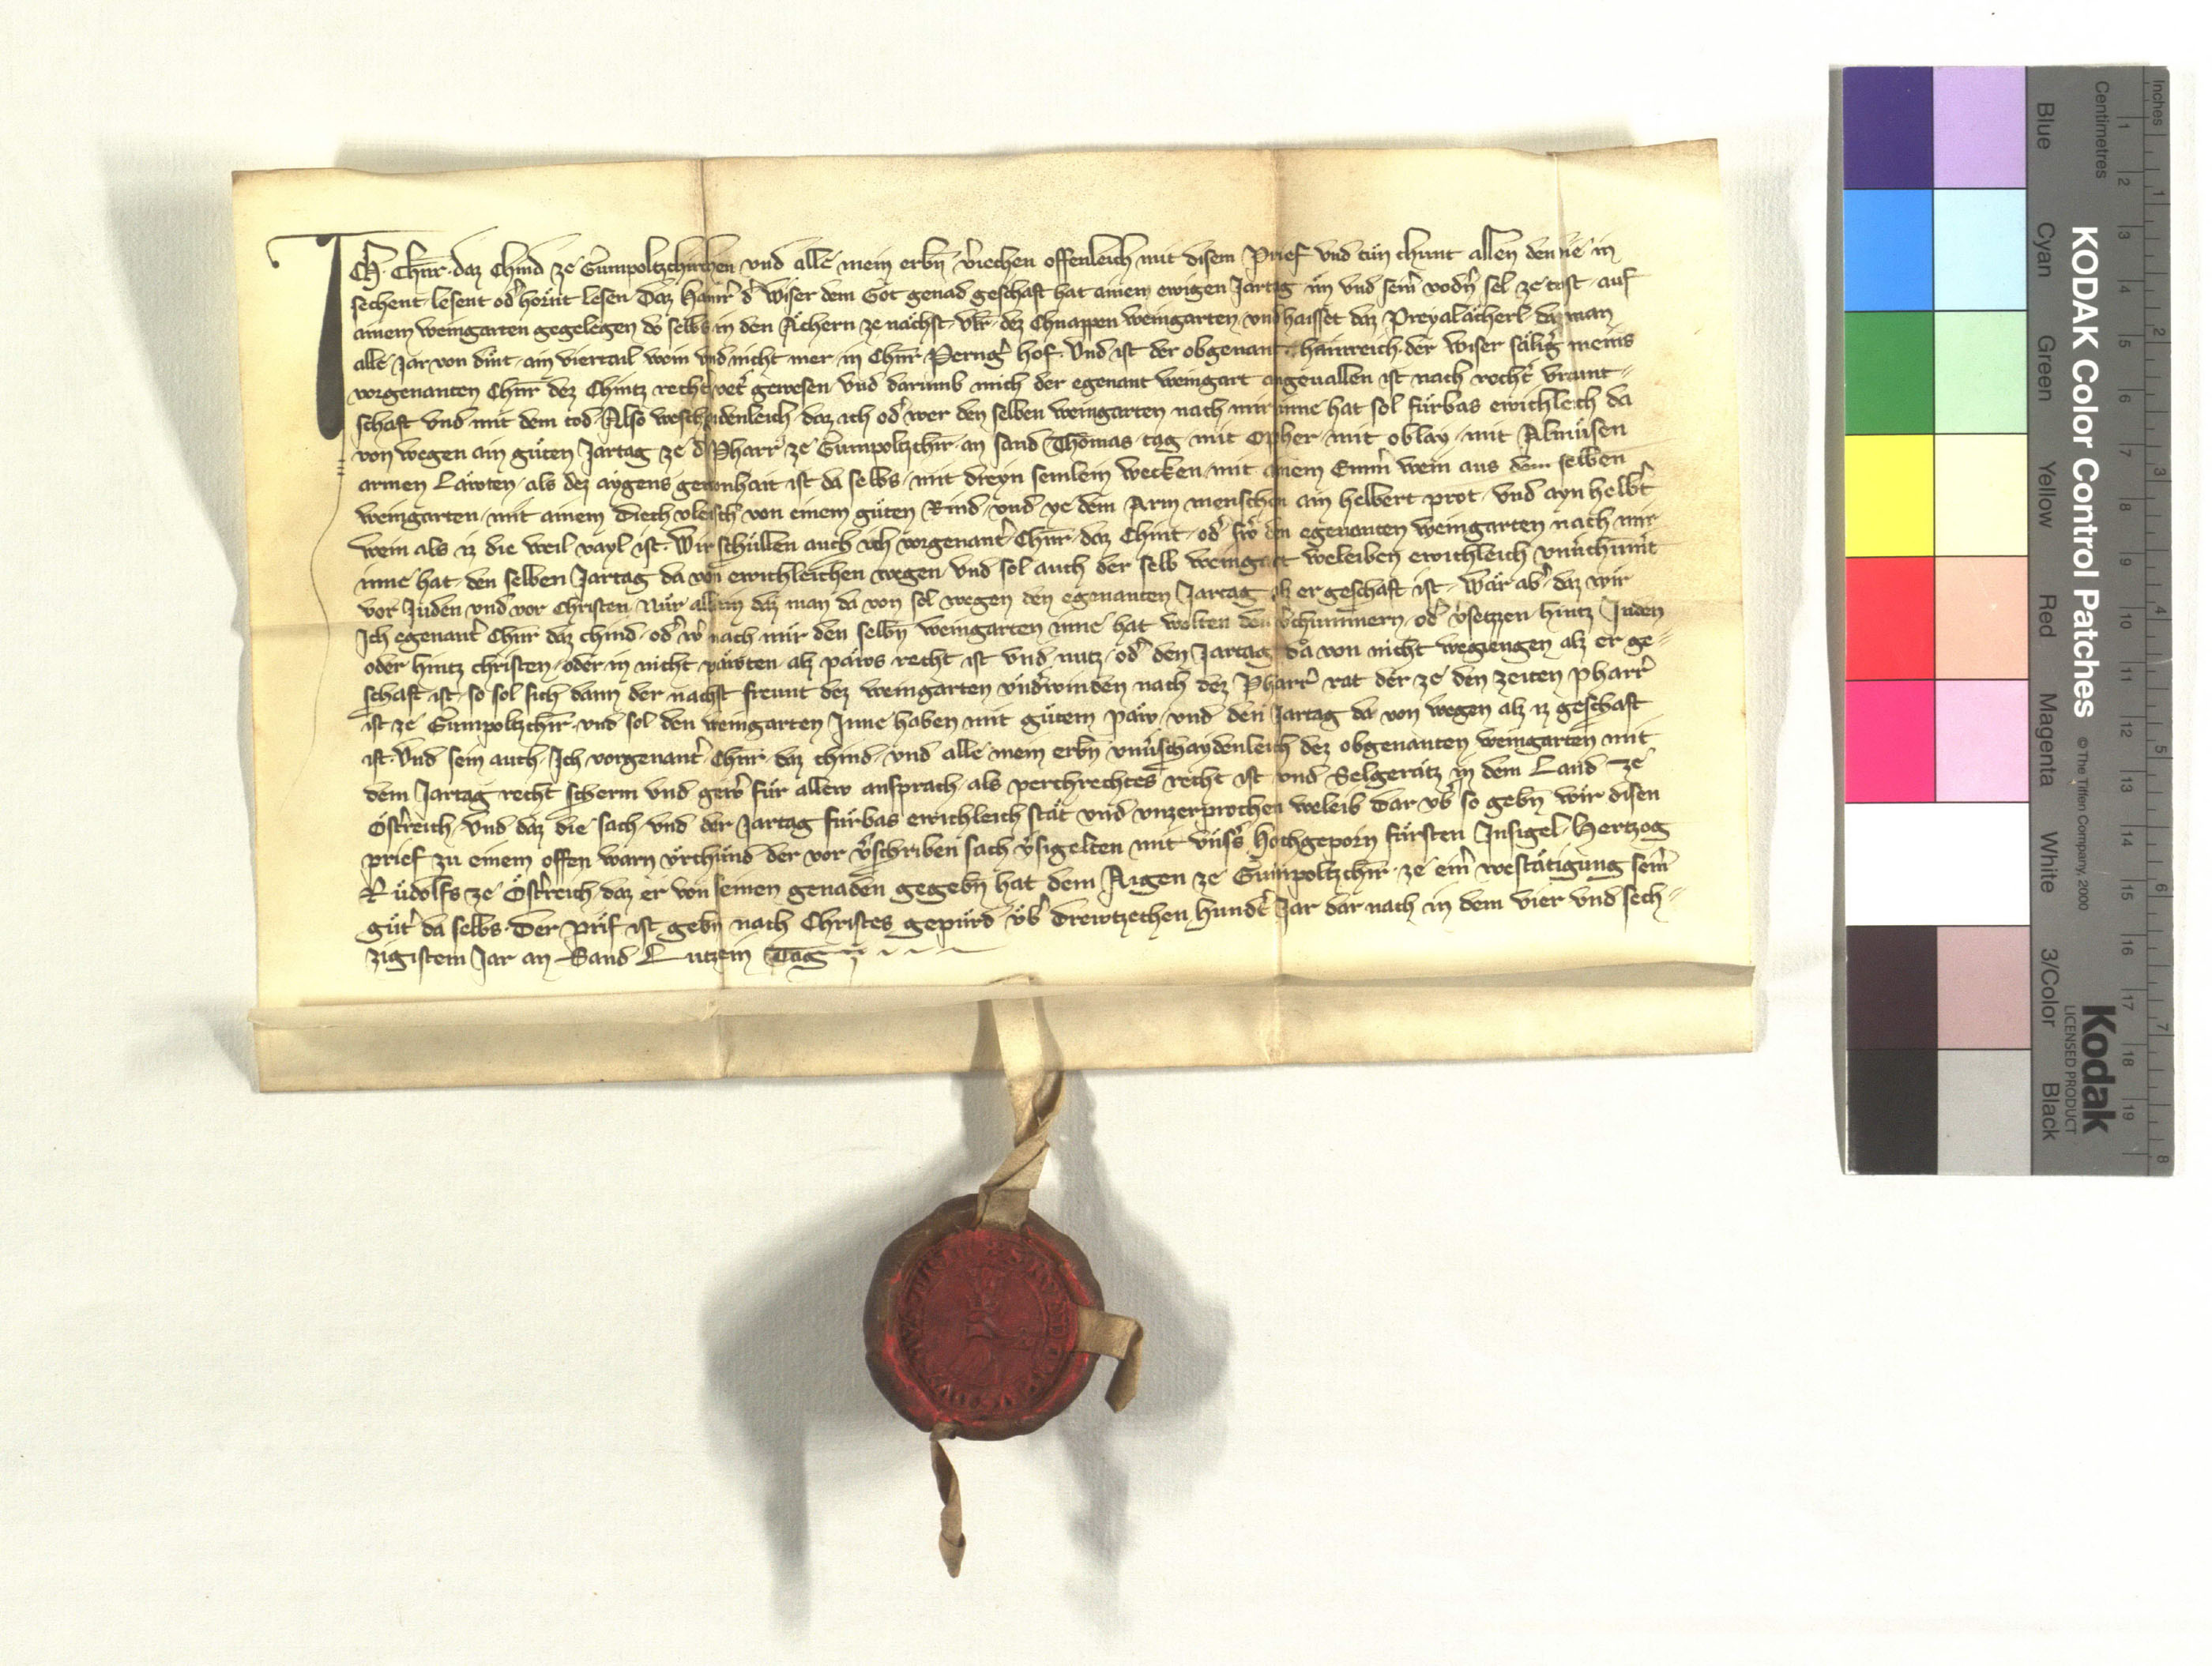 Ich Chůnr daz Chind ze Gumpoltzchirchen vnd alle mein erbn̄ v̓iechen offenleich mit disem Prief vnd tůn chunt allen den die in
sechent lesent od̓ hörnt lesen Daz Hainr̓ d̓ Wiser dem Got genad geschaft hat ainem ewigen Jartag im vnd sein̓ vodn̓ sel ze trost auf
ainem weingarten gegelegen do selbs in den Ächern ze nächst Vlr̓ dez Chnappen weingarten vnd haisset daz Preyalächerl da man
alle Jar von dint ain viertail wein vnd nicht mer in Chůnr̓ Perng̓ hof Vnd ist der obgenant Hainreich der Wiser sälig̓ meins
vorgenanten Chůnr dez Chintz recht̓ vet̓ gewesen vnd darumb mich der egenant weingart angeuallen ist nach recht̓ vrunt⸗
schaft vnd mit dem tod Also weschaidenleich daz ich od̓ wer den selben weingarten nach mir inne hat sol fürbas ewichleich da
von wegen ain gůten Jartag ze d̓ Pharr ze Gumpoltzchir̓ an sand Thomas tag mit Opher mit oblay mit Almůsen
armen Läwten als dez aygens gewonhait ist da selbs mit dreyn semlein wecken mit ainem Emm̓ wein aus dem selben
weingarten mit ainem diech vleisch von einem gůten Rind vnd ye dem Arm menschen ain helbert prot vnd ayn helbt̓
wein als iz die weil vayl ist Wir schüllen auch ich vorgenant̓ Chůnr daz Chint od̓ sw̓ den egenanten weingarten nach mir
inne hat den selben Jartag da von ewichleichen wegen vnd sol auch der selb weingart weleiben ewichleich vnu̓chum̓t
vor Juden vnd vor Christen Nür allain daz man da von sol wegen den egenanten Jartag alz er geschaft ist Wär ab̓ daz wir
Ich egenant̓ Chůnr daz chind od̓ w̓ nach mir den selbn̄ weingarten inne hat wolten den v̓chummern od̓ v̓setzen hintz Juden
oder hintz christen oder in nicht päwten alz päws recht ist vnd nutz od̓ den Jartag da von nicht wegiengen alz er ge⸗
schaft ist so sol sich dann der nächst freunt dez weingarten vnd̓winden nach dez Pharr̓ rat der ze den zeiten pharr̓
ist ze Gumpoltzchir̓ vnd sol den weingarten Inne haben mit gůtem päw vnd den Jartag da von wegen alz iz geschaft
ist Vnd sein auch Ich vorgenant̓ Chůnr daz chind vnd alle mein erbn̄ vnu̓schaydenleich dez obgenanten weingarten mit
dem Jartag recht scherm vnd gew̓ für allew ansprach als perchrechtes recht ist vnd Selgerätz in dem Land ze
Öst̓reich Vnd daz die sach vnd der Jartag fürbas ewichleich stät vnd vnzerprochen weleib Dar vb̓ so gebn̄ wir disen
prief zu einem offen warn vrchünd der vor v̓schriben sach v̓sigelten mit vnss̓s Hochgeporn fürsten Insigel Hertzog
Růdolfs ze Öst̓reich daz er von seinen genaden gegebn̄ hat dem Aigen ze Gumpoltzchir̓ ze ein̓ westätigung sein̓
güt̓ da selbs Der prif ist gebn̄ nach Christes gepürd vb̓ Drewtzechen Hund̓t Jar dar nach in dem vier vnd sech⸗
zigistem Jar an Sand Lutzein Tag
KODAK Color Control Patches © The Tiffen Company, 2000 Kodak
LICENSED PRODUCT
Inches 1 2 3 4 5 6 7 8
Centimetres 1 2 3 4 5 6 7 8 9 10 11 12 13 14 15 16 17 18 19
Blue Cyan Green Yellow Red Magenta White 3/Color Black